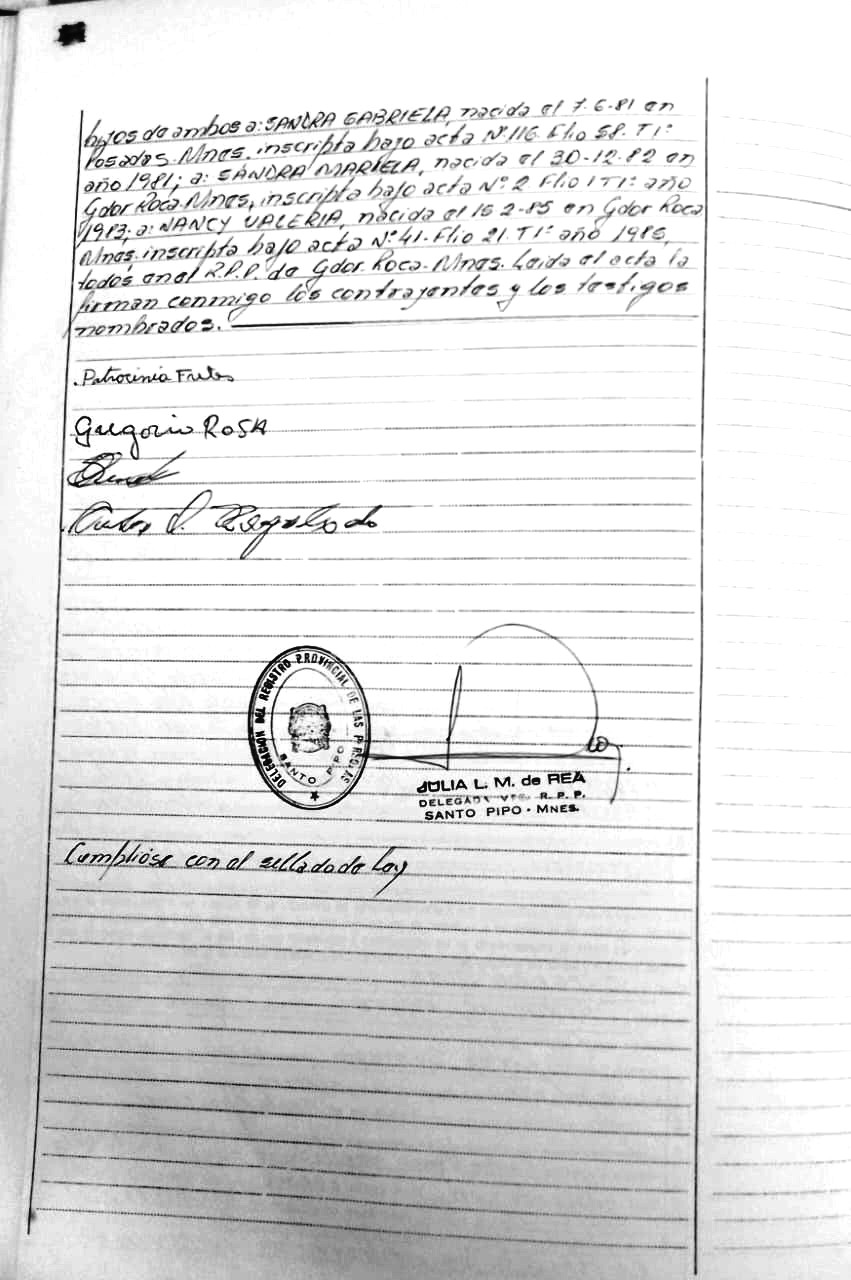 hijos de ambos a: SANDRA GABRIELA, nacida el 7-6-81 en
Posadas-Mnes. inscripta bajo acta Nº 116 Flio 58. T1º
año 1981; a: SANDRA MARIELA, nacida el 30-12-82 en
Gdor Roca Mnes, inscripta bajo acta Nº 2 Flio 1 T1º año
1983; a: NANCY VALERIA, nacida el 2-85 en Gdor Roca
Mnes. inscripta bajo acta Nº 41- Flio 21. T1º año
todos en el R.P.P. de Gdor. Roca- Mnes. Leida el acta la
firman conmigo los contrayentes y los testigos
nombrados.
Patrocinia
Gregorio ROSA
DELEGACION DEL REGISTRO PROVINCIAL DE LAS PERSONAS
SANTO PIPO
JULIA L. M. de REA
R. P. P.
SANTO PIPO - MNES.
Cumplióse con el sellado de Ley